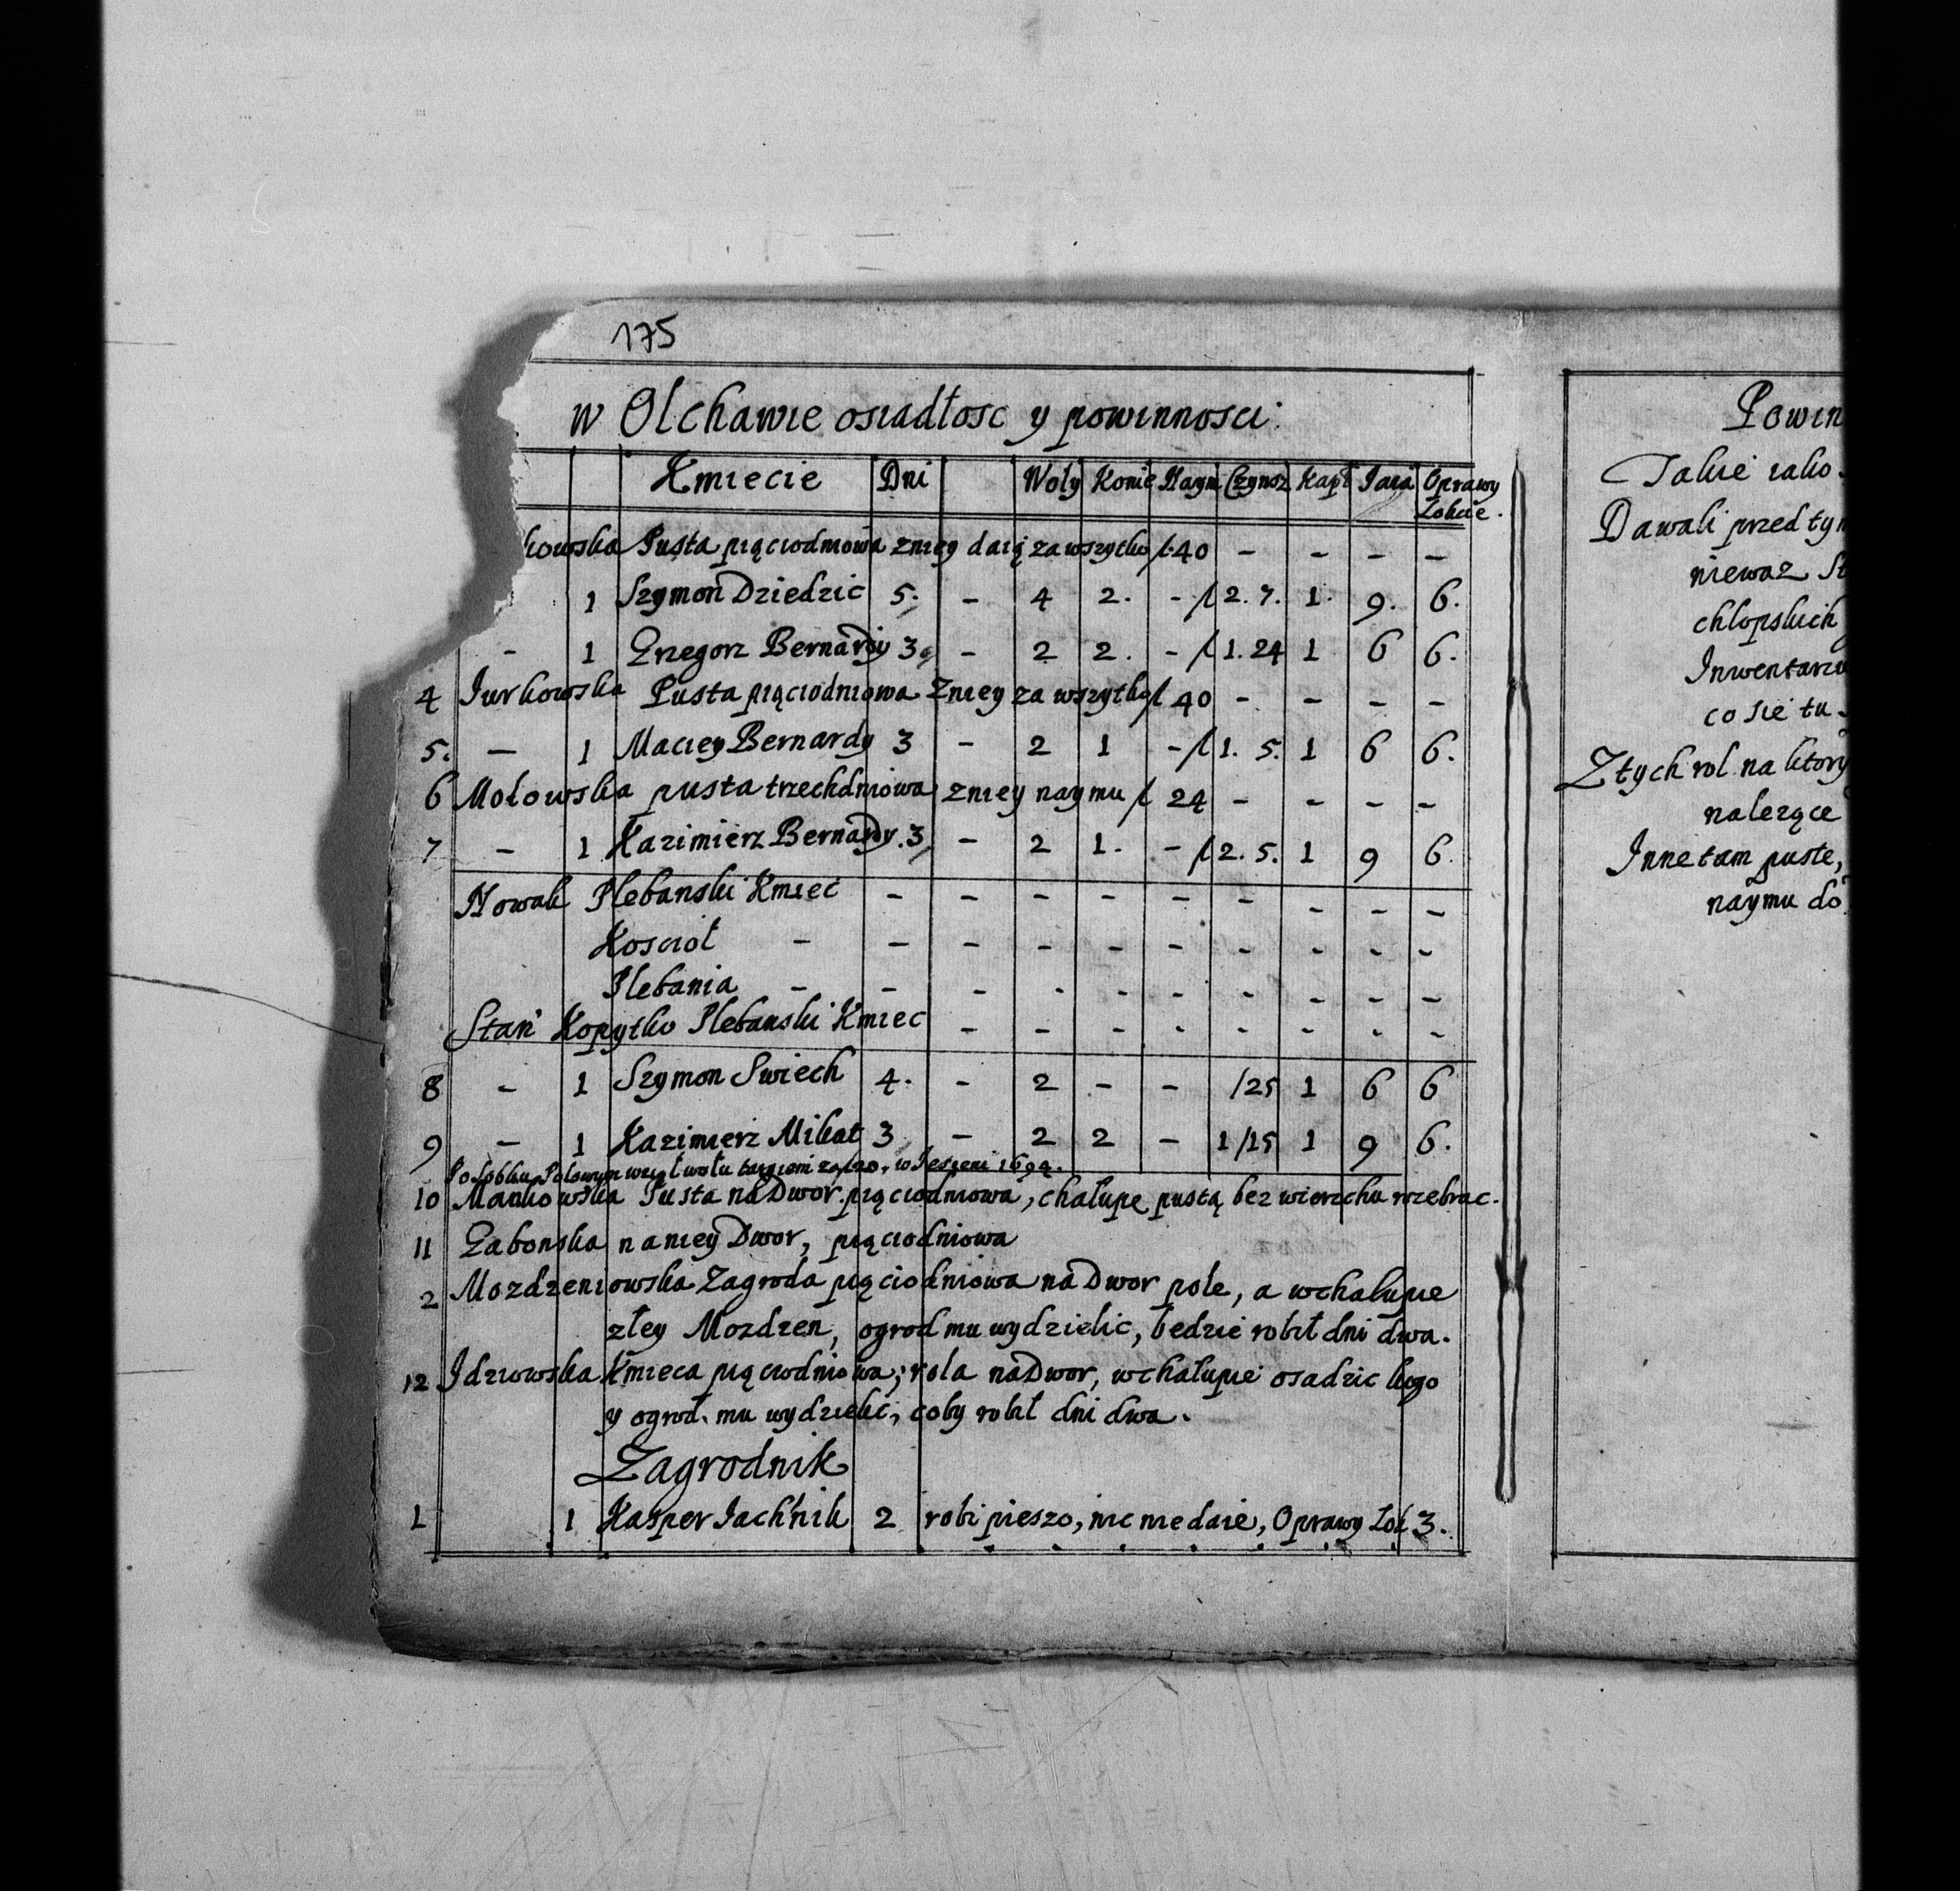 175
w Olchawie osiadłosc y powinnosci.
Kmiecie Dni Woły Konie Naym Czynsz Kapł Jaia Oprawy Łokcie.
kowska Pusta pięciodniowa zniey daią za wszytko f. 40 - - - -
1 Szymon Dziedzic 5. - 4 2. - f 2. 7. 1. 9. 6.
- 1 Grzegorz Bernardy 3 - 2 2. - f 1. 24 1 6 6.
4 Iurkowska Pusta pięciodniowa zniey za wszytko f 40 - - - -
5. - 1 Maciey Bernardy 3 - 2 1 - f 1. 5. 1 6 6.
6 Mołowska pusta trzechdniowa zniey naymu f 24 - - - -
7 - 1 Kazimierz Bernardy. 3 - 2 1. - f 2. 5. 1 9 6.
Nowak Plebanski Kmiec - - - - - - - - -
Koscioł - - - - - - - - - -
Plebania - - - - - - - - - -
Stan Kopytko Plebanski Kmiec - - - - - - - -
8 - 1 Szymon Swiech 4. - 2 - - /25 1 6 6
9 - 1 Kazimierz Mikat 3 - 2 2 - 1/15 1 9 6.
wziął wołu w Jeszeni 1694.
10 Mankowska Pusta na Dwor. pięciodniowa, chałupę pustą bez wierzchu rozebrac.
11 Gabonska naniey Dwor, pięciodniowa
2 Mozdzeniowska Zagroda pięciodniowa na Dwor pole, a wchałupie
złey Mozdzen, ogrod mu wydzielic, będzie robił dni dwa.
12 Idziowska Kmieca pięciodniowa, rola na Dwor, wchałupie osadzic kogo
y ogrod. mu wydzielic, coby robił dni dwa.
Zagrodnik
1 1 Kasper Iachnik 2 robi pieszo, nic niedaie, Oprawy Łok 3.
Powin
Takie iako
Dawali przed tym
niewaz St
chłopskich
Inwentarzu
co sie tu
Ztych rol na ktory
nalezące
Inne tam puste,
naymu do